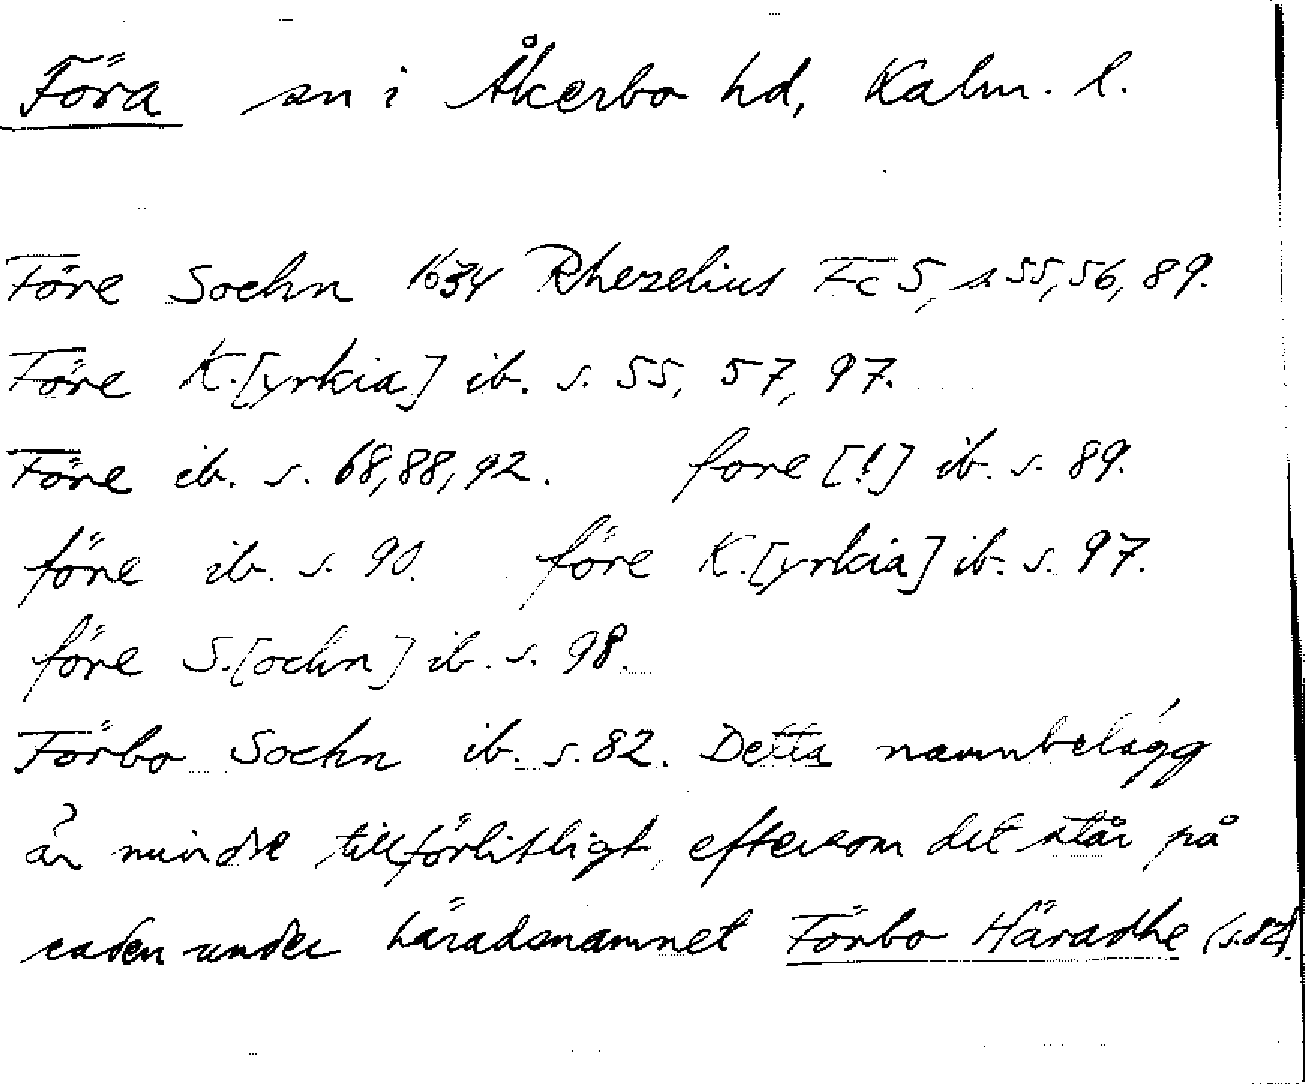 Föra sn i Åkerbo hd, Kalm. l.
Före Sochn 1634 Rhezelius Fc 5, s 55, 56, 89.
Före K.[yrkia] ib. s. 55, 57, 97.
Före ib. s. 68, 88, 92. fore [!] ib. s. 89.
före ib. s. 90. före K.[yrkia] ib. s. 97.
före S.[ochn] ib. s. 98.
Förbo Sochn ib. s. 82. Detta namnbelägg
är mindre tillförlitligt, eftersom det står på
raden under häradsnamnet Förbo Häradhe (s. 82).